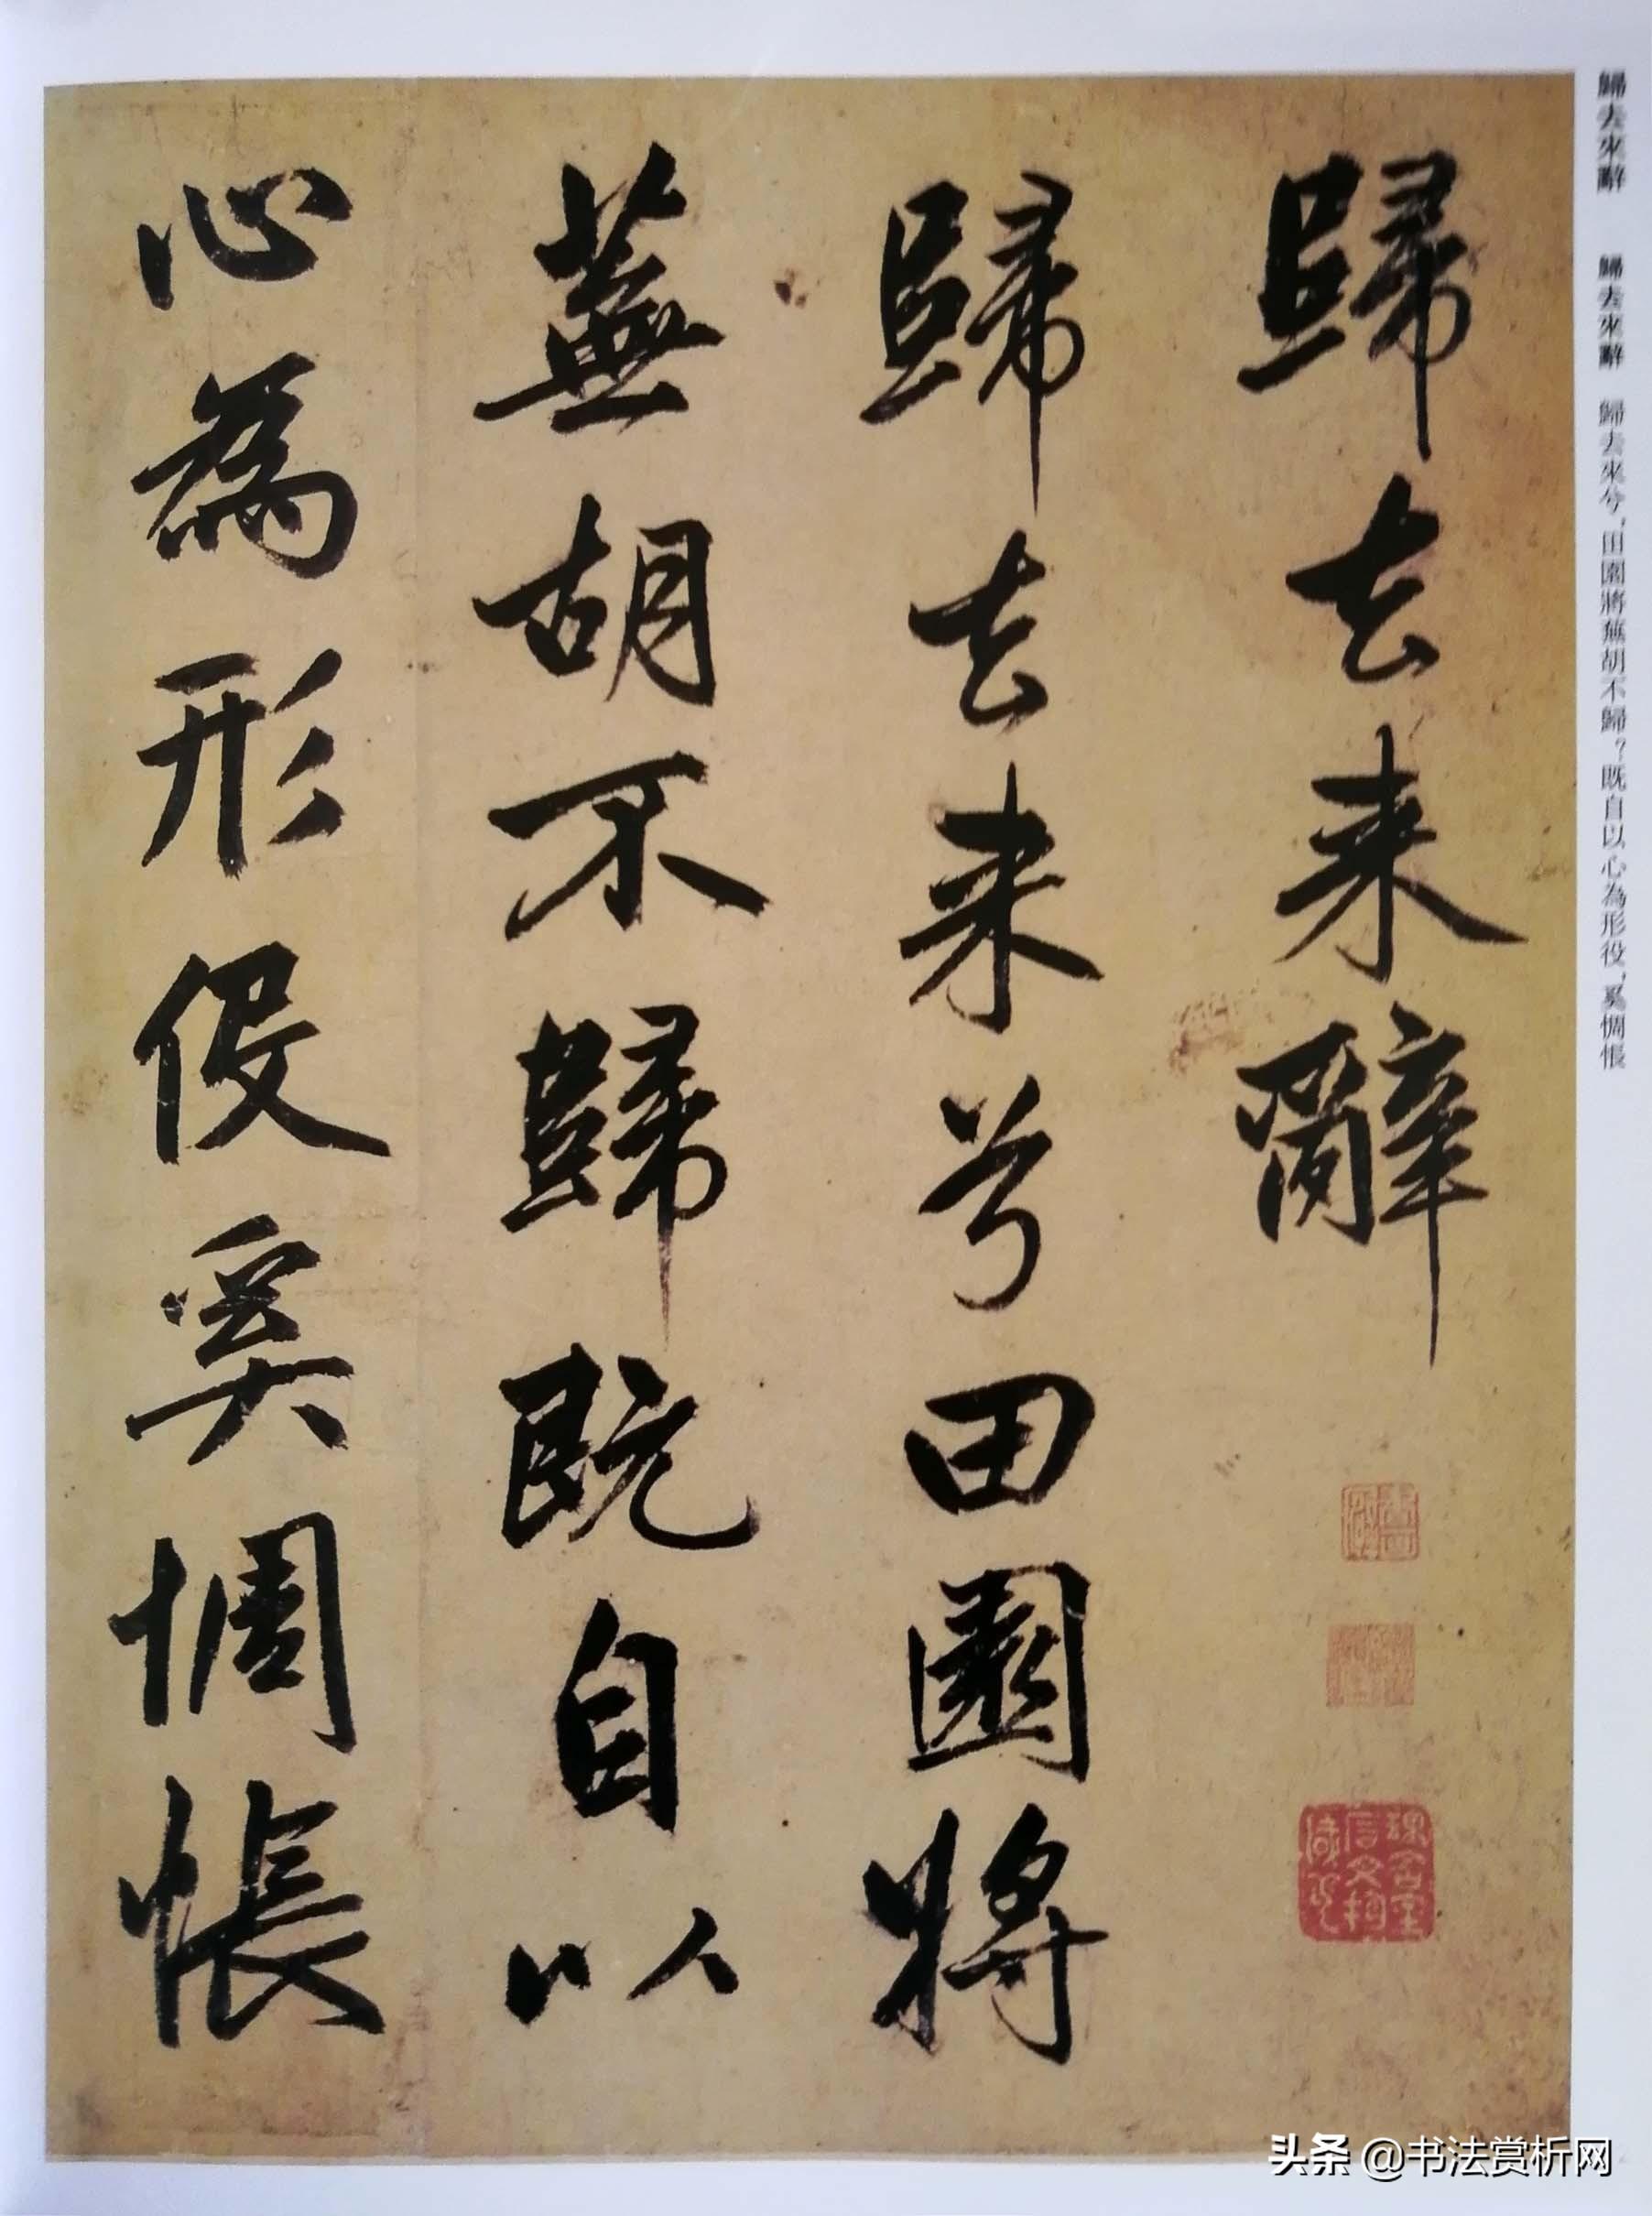 歸去来辭
歸去来兮田園將
蕪胡不歸既自以
心為形役奚惆悵
歸去來辭 歸去來辭 歸去來兮，田園將蕪胡不歸？既自以心為形役，奚惆悵
头条 @书法赏析网